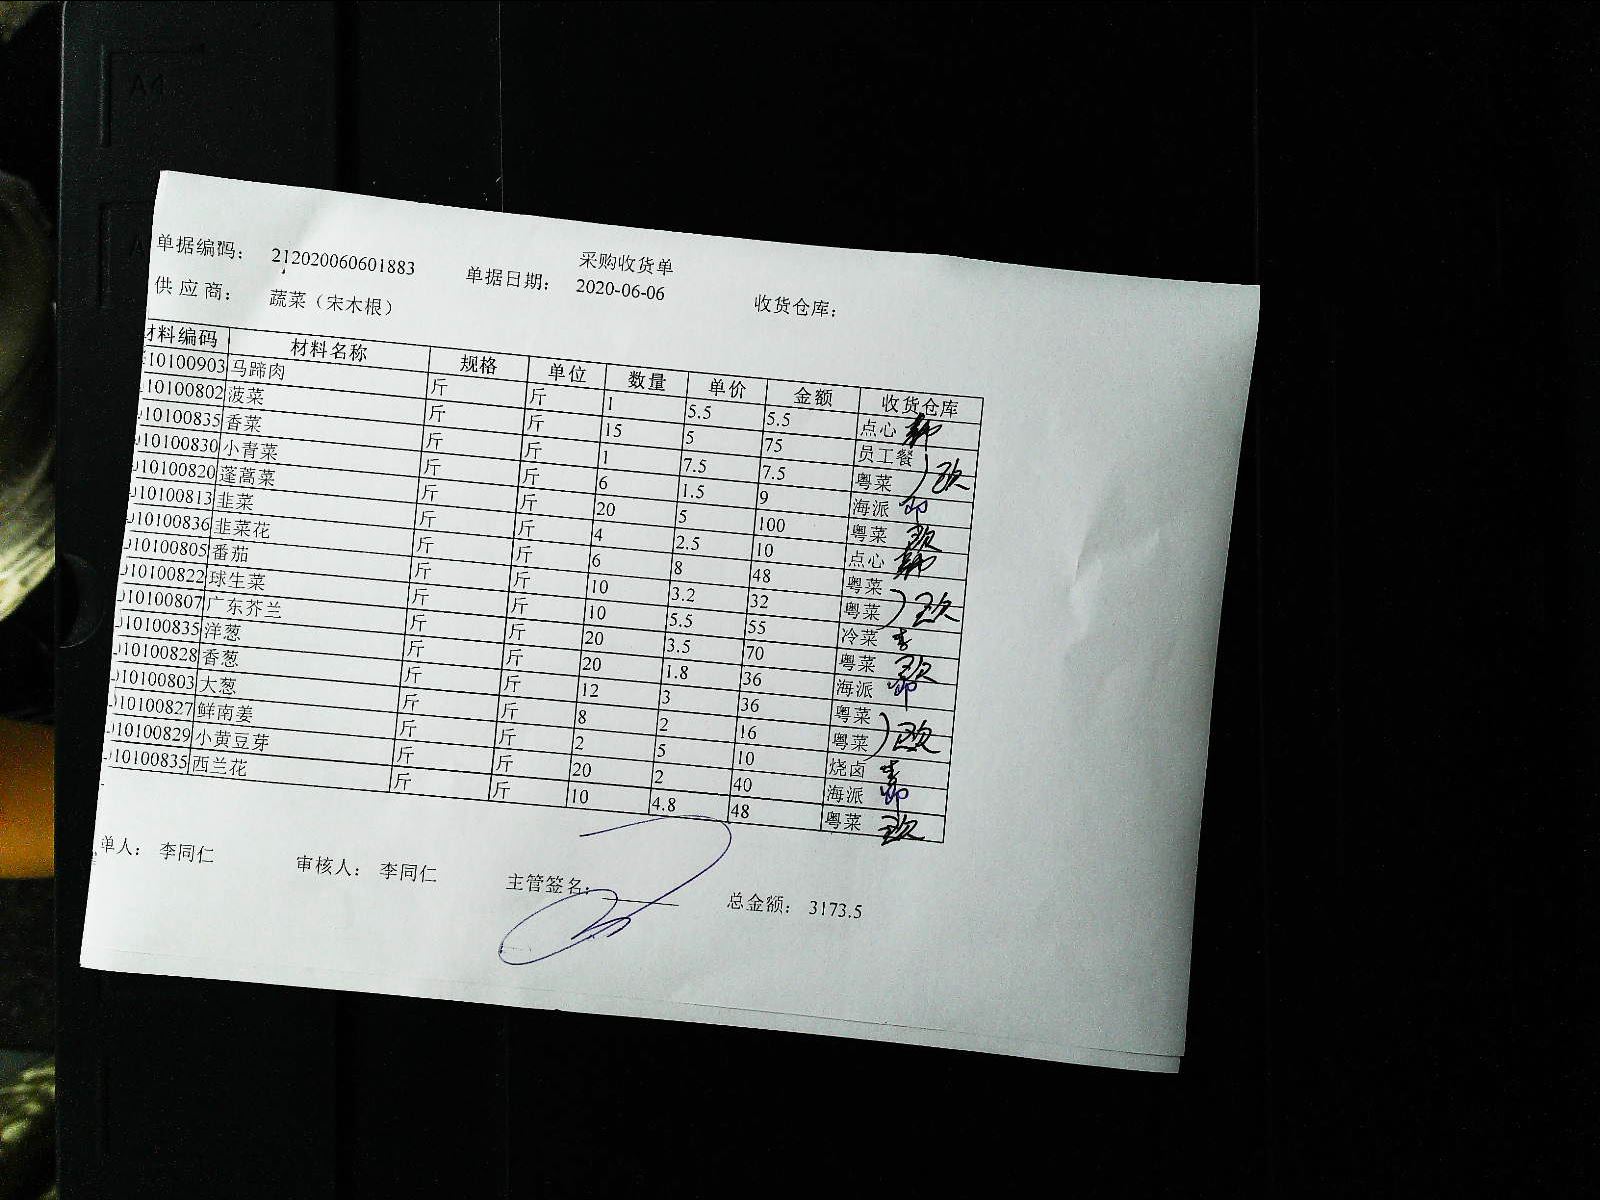 采购收货单
单据编码： 212020060601883 单据日期： 2020-06-06 收货仓库：
供 应 商： 蔬菜（宋木根）
材料编码 材料名称 规格 单位 数量 单价 金额 收货仓库
10100903 马蹄肉 斤 斤 1 5.5 5.5 点心
10100802 菠菜 斤 斤 15 5 75 员工餐
10100835 香菜 斤 斤 1 7.5 7.5 粤菜
10100830 小青菜 斤 斤 6 1.5 9 海派
10100820 蓬蒿菜 斤 斤 20 5 100 粤菜
10100813 韭菜 斤 斤 4 2.5 10 点心
10100836 韭菜花 斤 斤 6 8 48 粤菜
10100805 番茄 斤 斤 10 3.2 32 粤菜
10100822 球生菜 斤 斤 10 5.5 55 冷菜
10100807 广东芥兰 斤 斤 20 3.5 70 粤菜
10100835 洋葱 斤 斤 20 1.8 36 海派
10100828 香葱 斤 斤 12 3 36 粤菜
10100803 大葱 斤 斤 8 2 16 粤菜
10100827 鲜南姜 斤 斤 2 5 10 烧卤
10100829 小黄豆芽 斤 斤 20 2 40 海派
10100835 西兰花 斤 斤 10 4.8 48 粤菜
单人： 李同仁 审核人： 李同仁 主管签名： 总金额： 3173.5